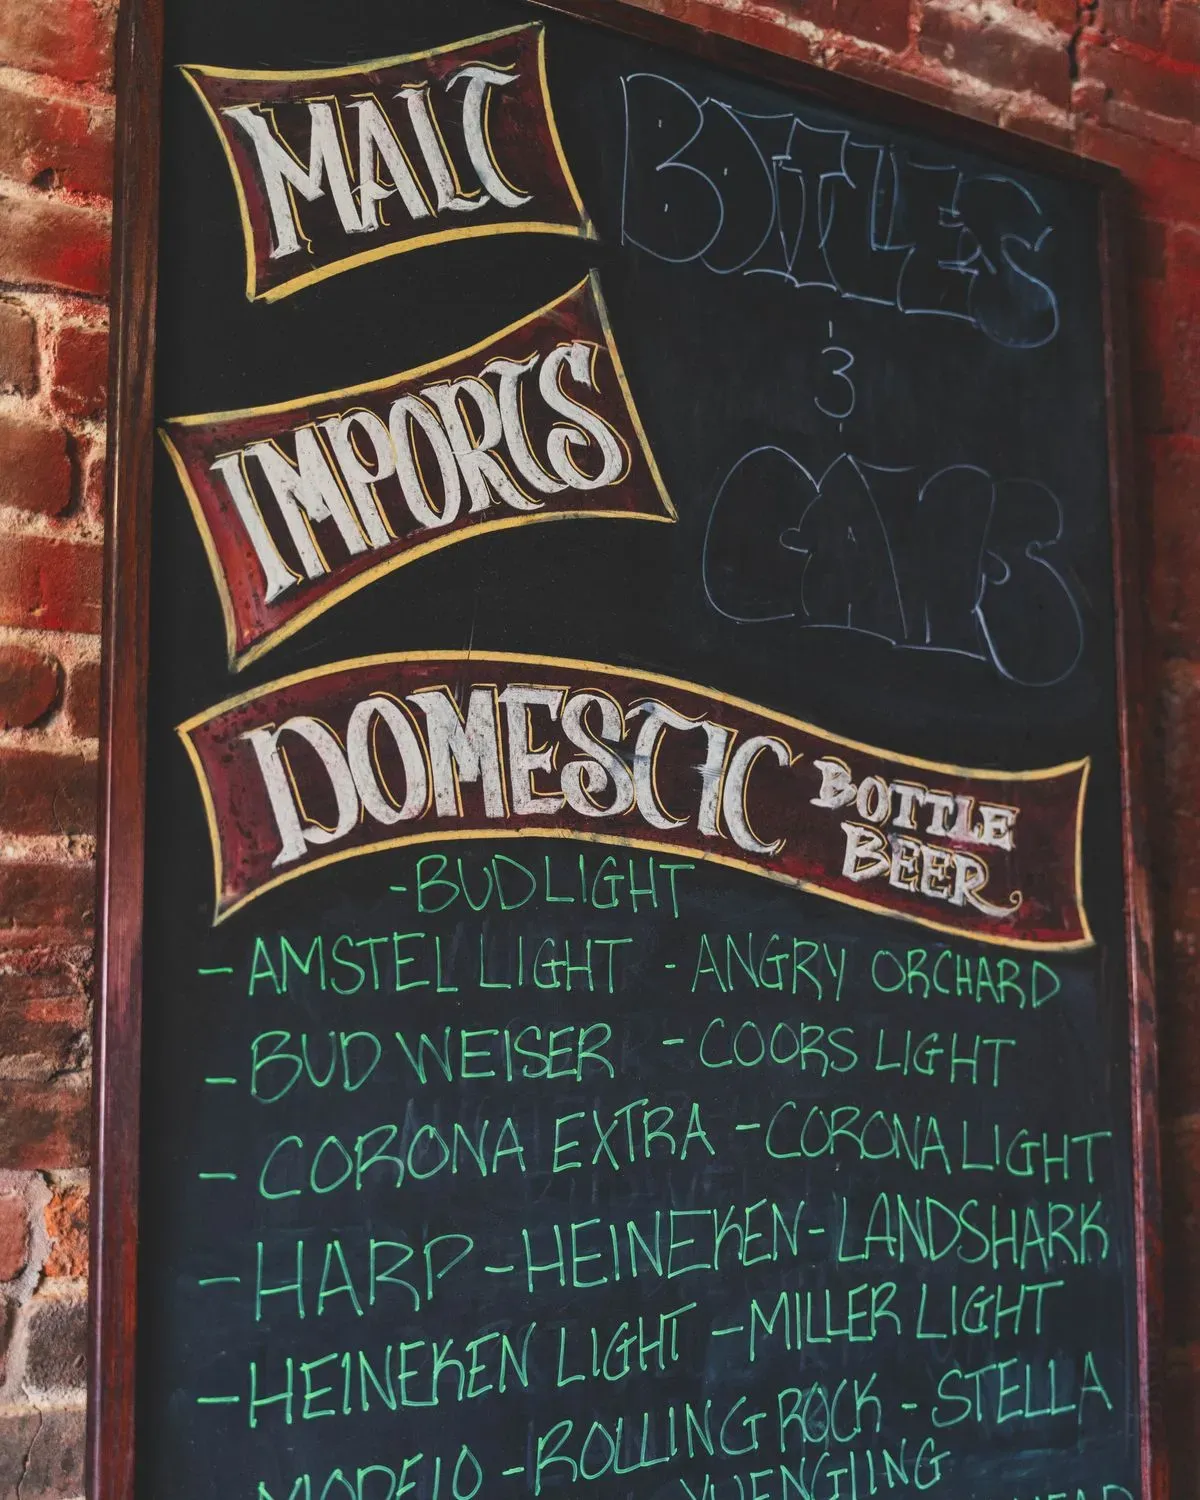 MALT
BOTTLES
&
CANS
IMPORTS
DOMESTIC BOTTLE BEER
-BUD LIGHT
- AMSTEL LIGHT - ANGRY ORCHARD
- BUD WEISER - COORS LIGHT
- CORONA EXTRA - CORONA LIGHT
- HARP - HEINEKEN - LANDSHARK
- HEINEKEN LIGHT - MILLER LIGHT
MODELO - ROLLING ROCK - STELLA
YUENGLING